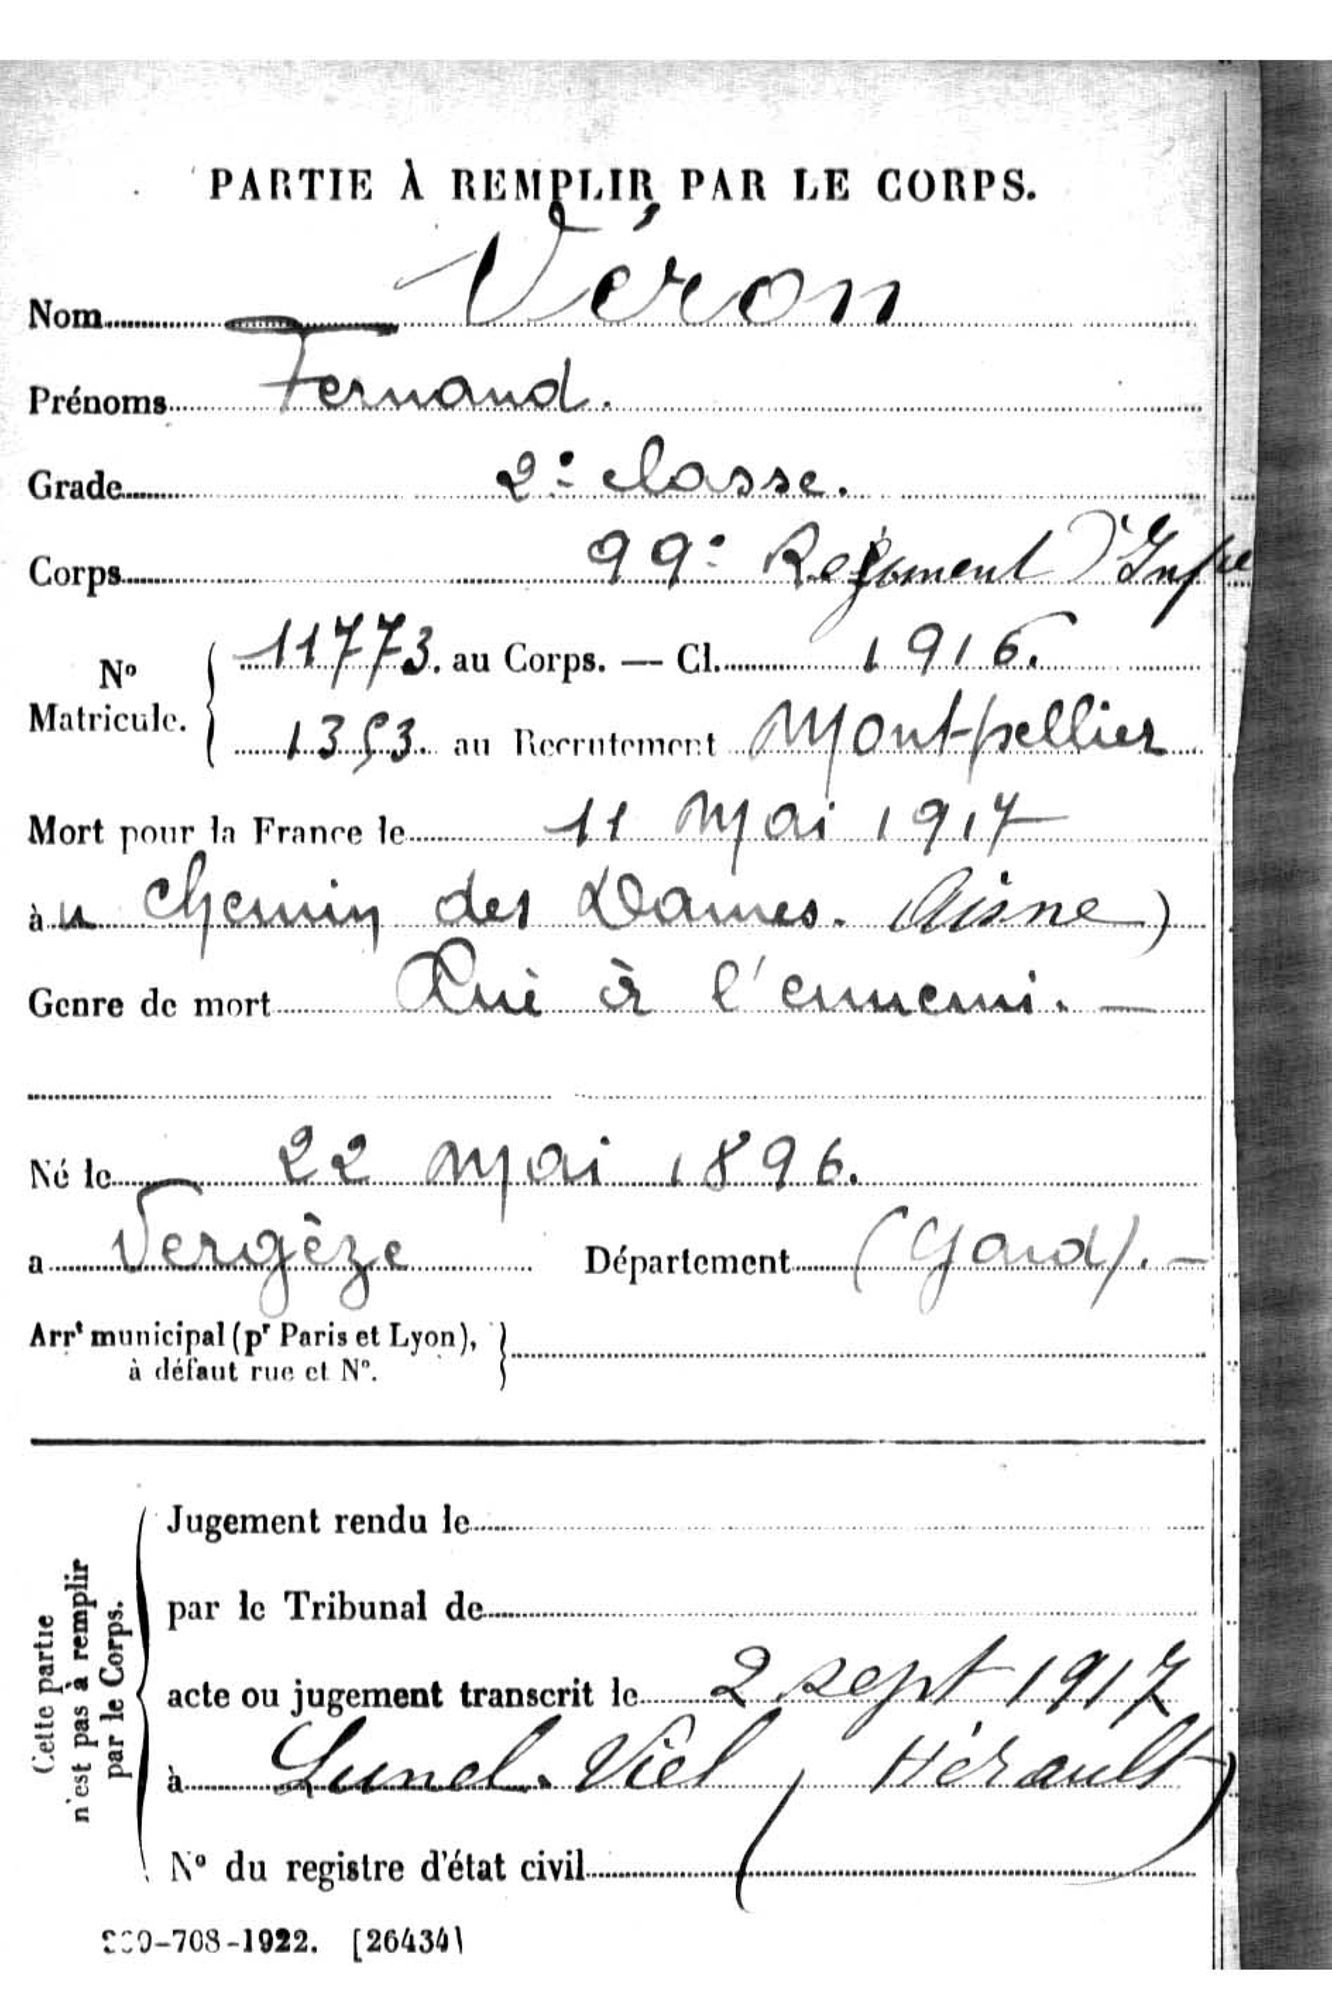 PARTIE À REMPLIR PAR LE CORPS.
Nom Véron
Prénoms Fernand.
Grade 2e classe.
Corps 99e Regiment d'Infie
No Matricule. { 11773. au Corps. — Cl. 1916.
1353. au Recrutement Montpellier
Mort pour la France le 11 Mai 1917
àu Chemin des Dames. (Aisne)
Genre de mort Tué à l'ennemi. —
Né le 22 Mai 1896.
a Vergèze Département (Gard). —
Arrt municipal (pr Paris et Lyon), }
à défaut rue et No.
Cette partie
n'est pas à remplir
par le Corps.
Jugement rendu le
par le Tribunal de
acte ou jugement transcrit le 2 sept 1917
à Lunel-Viel (Hérault)
No du registre d'état civil
-708-1922. [26434]